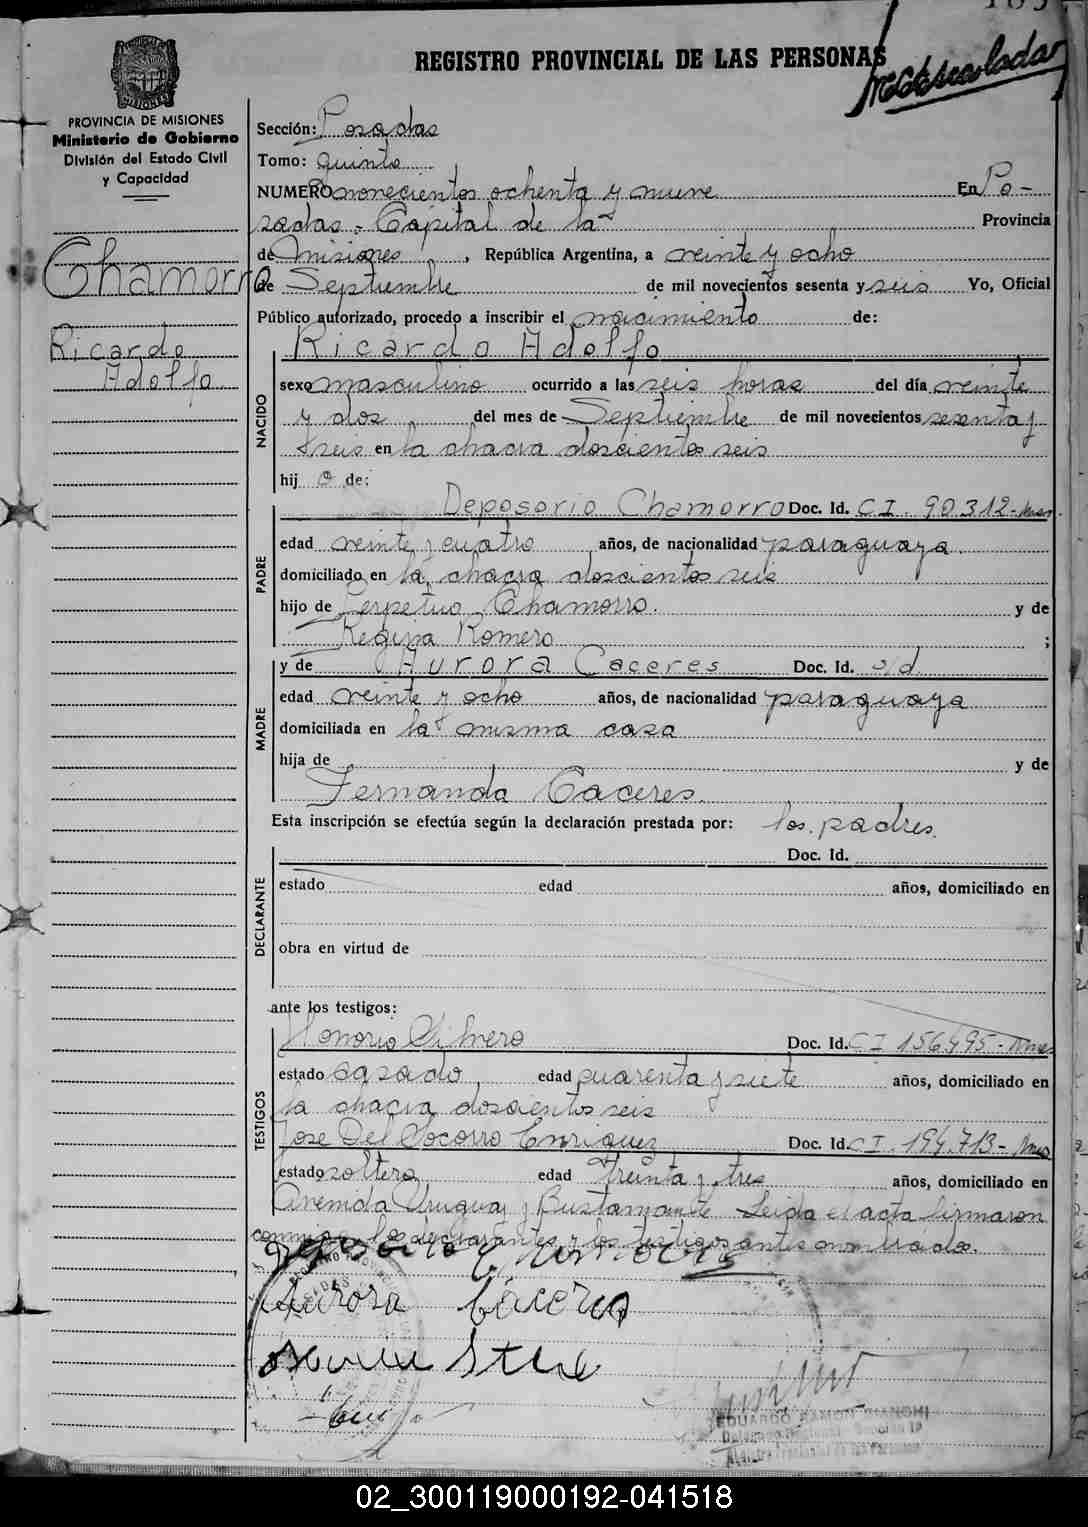 REGISTRO PROVINCIAL DE LAS PERSONAS
PROVINCIA DE MISIONES
Ministerio de Gobierno
División del Estado Civil
y Capacidad
Chamorro
Ricardo
Adolfo
Sección: Posadas
Tomo: quinto
NUMERO novecientos ochenta y nueve En Po-
sadas, Capital de la Provincia
de Misiones, República Argentina, a veinte y ocho
de Septiembre de mil novecientos sesenta y seis Yo, Oficial
Público autorizado, procedo a inscribir el nacimiento de:
Ricardo Adolfo
NACIDO
sexo masculino ocurrido a las seis horas del día veinte
y dos del mes de Septiembre de mil novecientos sesenta y
seis en la chacra doscientos seis
hij o de:
Deposorio Chamorro Doc. Id. C.I. 90.312-
PADRE
edad veinte y cuatro años, de nacionalidad paraguaya
domiciliado en la chacra doscientos seis
hijo de Perpetuo Chamorro. y de
Regina Romero ;
y de Aurora Caceres Doc. Id. s/d
MADRE
edad veinte y ocho años, de nacionalidad paraguaya
domiciliada en la misma casa
hija de y de
Fernanda Caceres.
Esta inscripción se efectúa según la declaración prestada por: los padres.
Doc. Id.
DECLARANTE
estado edad años, domiciliado en
obra en virtud de
ante los testigos:
Honorio Doc. Id. C I 156.495-
TESTIGOS
estado casado edad cuarenta y siete años, domiciliado en
la chacra doscientos seis
Jose Del Socorro Enriquez Doc. Id. C.I. 194.713-
estado soltero edad treinta y tres años, domiciliado en
Avenida Uruguay y Bustamante. Leida el acta firmaron
conmigo los declarantes y los testigos antes nombrados.
Aurora Cáceres
EDUARDO RAMON
02_300119000192-041518